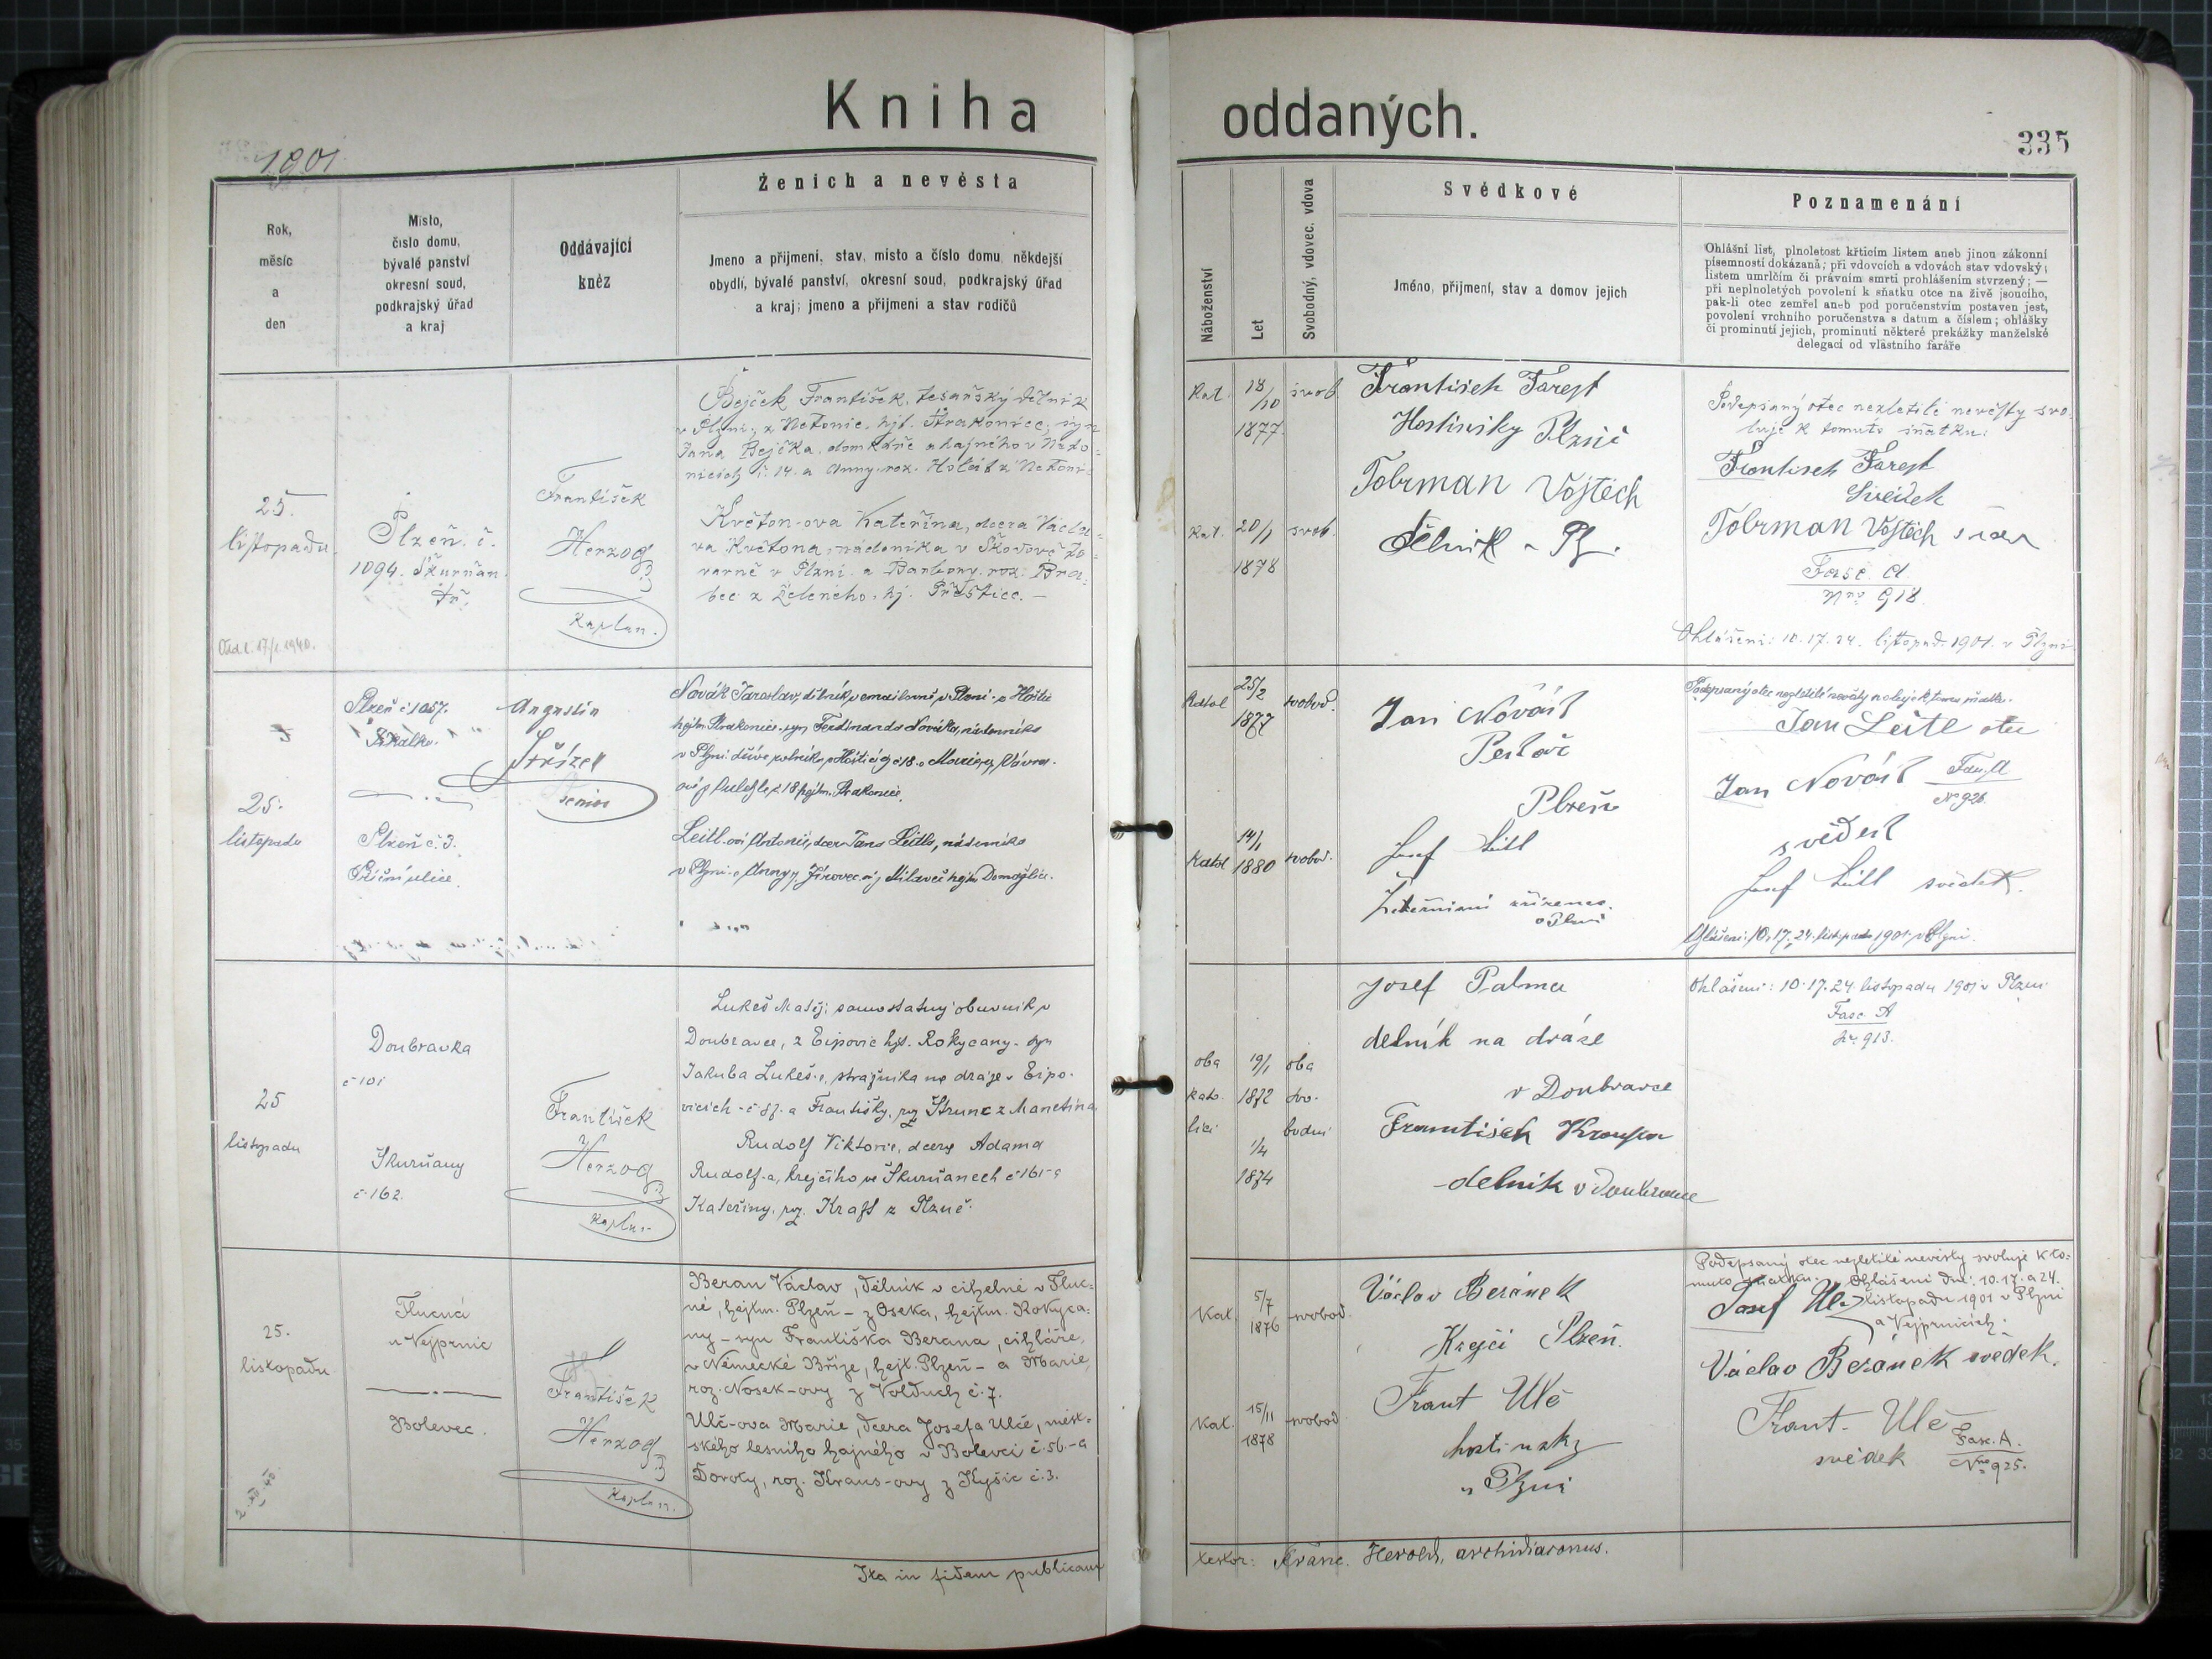 Kniha oddaných.
335
1901
Rok,
měsíc
a
den
Místo,
číslo domu,
bývalé panství
okresní soud,
podkrajský úřad
a kraj
Oddávající
kněz
Ženich a nevěsta
Jmeno a přijmení, stav, místo a číslo domu, někdejší
obydlí, bývalé panství, okresní soud, podkrajský úřad
a kraj; jmeno a přijmeni a stav rodičů
Náboženství
Let
Svobodný, vdovec, vdova
Svědkové
Jméno, přijmení, stav a domov jejich
Poznamenání
Ohlášní list, plnoletost křticím listem aneb jinou zákonní
písemností dokázaná; při vdovcích a vdovách stav vdovský,
listem umrlčím či právním smrti prohlášením stvrzený; —
při neplnoletých povolení k sňatku otce na živě jsoucího,
pak-li otec zemřel aneb pod poručenstvím postaven jest,
povolení vrchního poručenstva s datum a číslem; ohlášky
či prominutí jejich, prominutí některé prekážky manželské
delegací od vlastního faráře
25.
listopadu.
Plzeň. č.
1094. Škurňan.
tř.
František
Herzog
Kaplan.
Bejček František, tesařský dělník
v Plzni, z Netonic, hjt. Strakonice, syn
Jana Bejčka, domkáře a hajného v Neto-
nicích č. 14. a Anny, roz.
Květon-ova Kateřina, dcera Václa-
va Květona, nádeníka v Škodově to-
várně v Plzni a Barbory, roz. Bra-
bec z Zeleného, hj. Přeštice. —
Kat. 18/10 1877. svob.
Kat. 20/1 1878 svob.
Frantisek Farest
Hostinsky Plznič
Tobrman Vojtěch
Dělnik - Pl.
Podepsaný otec nezletilé nevěsty svo-
luje k tomuto sňatku:
Frantisek Farest
Svědek
Tobrman Vojtěch
Fasc. A.
Nro 918.
Ohlášení: 10. 17. 24. listopad. 1901. v Plzni
25.
listopadu
Plzeň č 1057.
Skalka.
Plzeň č. 3.
Říční ulice.
Augustin
Střízek
Senior
Novák Jaroslav, dělník v emailovně v Plzni, z Hoštic
hejtm. Strakonice, syn Ferdinanda Nováka, nádenníka
v Plzni dříve rolníka v Hošticích č 18. a Marie, roz. Vávra-
č 18 hejtm. Strakonice.
Leitl-ová Antonie, dcera Jana Leitla, nádenníka
v Plzni a Anny, r. Jírovec, z Milavče hejtm Domažlice.
Katol 25/2 1877 svobod.
Katol 14/1 1880 svobod.
Jan Novák
Plzeň
Josef Leitl
v Plzni
Podepsaný otec nezletilé nevěsty svoluje k tomu sňatku.
Jan Leitl otec
Jan Novák Fasc. A
No 926.
svědek
Josef Leitl svědek.
Ohlášení: 10, 17, 24. listopadu 1901 v Plzni.
25
listopadu
Doubravka
č 101
Skurňany
č 162.
František
Herzog
Kaplan
Lukeš Matěj, samostatný obuvník v
Doubravce, z Ejpovic hjt. Rokycany - syn
Jakuba Lukeš-e, strážníka na dráze v Ejpo-
vicích - č 87. a Františky, roz Strunc z Manetína
Rudolf Viktorie, dcera Adama
Rudolf-a, krejčího ve Škurňanech č 161 a
Kateřiny, roz. Kraft z Plzně.
oba kato- lici
19/1 1872
1/4 1874
oba svo- bodni
Josef Palma
delník na dráze
v Doubravce
Frantisek Kroupa
delnik v Doubravce
Ohlášení: 10. 17. 24. listopadu 1901 v Plzni
Fasc. A
Nr. 913.
25.
listopadu
Tlucná
u Nýprnic
Bolevec.
František
Herzog
Kaplan.
Beran Václav, dělník v cihelně v Tluc-
né, hejtm. Plzeň - z Oseka, hejtm. Rokyca-
ny - syn Františka Berana, cihláře,
v Německé Bříze, hejt. Plzeň - a Marie,
roz. Nosek-ovy z Volduch č. 7.
Ulč-ova Marie, dcera Josefa Ulče, měst-
ského lesního hajného v Bolevci č. 56. - a
Doroty, roz. Kraus-ovy z Kyšic č. 3.
Kat. 5/7 1876 svobod.
Kat. 15/11 1878 svobod
Václav Beránek
Krejčí Plzeň.
Frant Ulč
hostinský
v Plzni
Podepsaný otec nezletilé nevěsty svoluje k to-
muto sňatku. Ohlášení dne: 10. 17. a 24.
Josef Ulč listopadu 1901 v Plzni
a Vejprnicích.
Václav Beránek svědek.
Frant. Ulč
svědek
Fasc. A.
Nro 925.
Ita in fidem publicam
testor: Franc. Herold, archidiaconus.